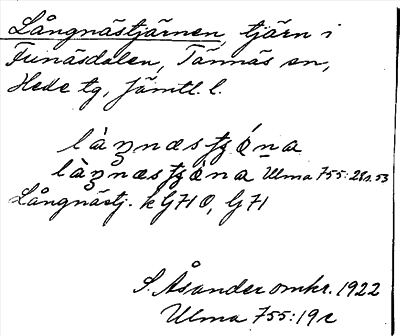 Långnästjärnen, tjärn i
Funäsdalen, Tännäs sn,
Hede tg, Jämtl. l.
làŋnæstjǿna
làŋnæstjǿna Ulma 755:28 s. 53
Långnästj. k GHO, GH
S. Åsander omkr. 1922
Ulma 755:19 c